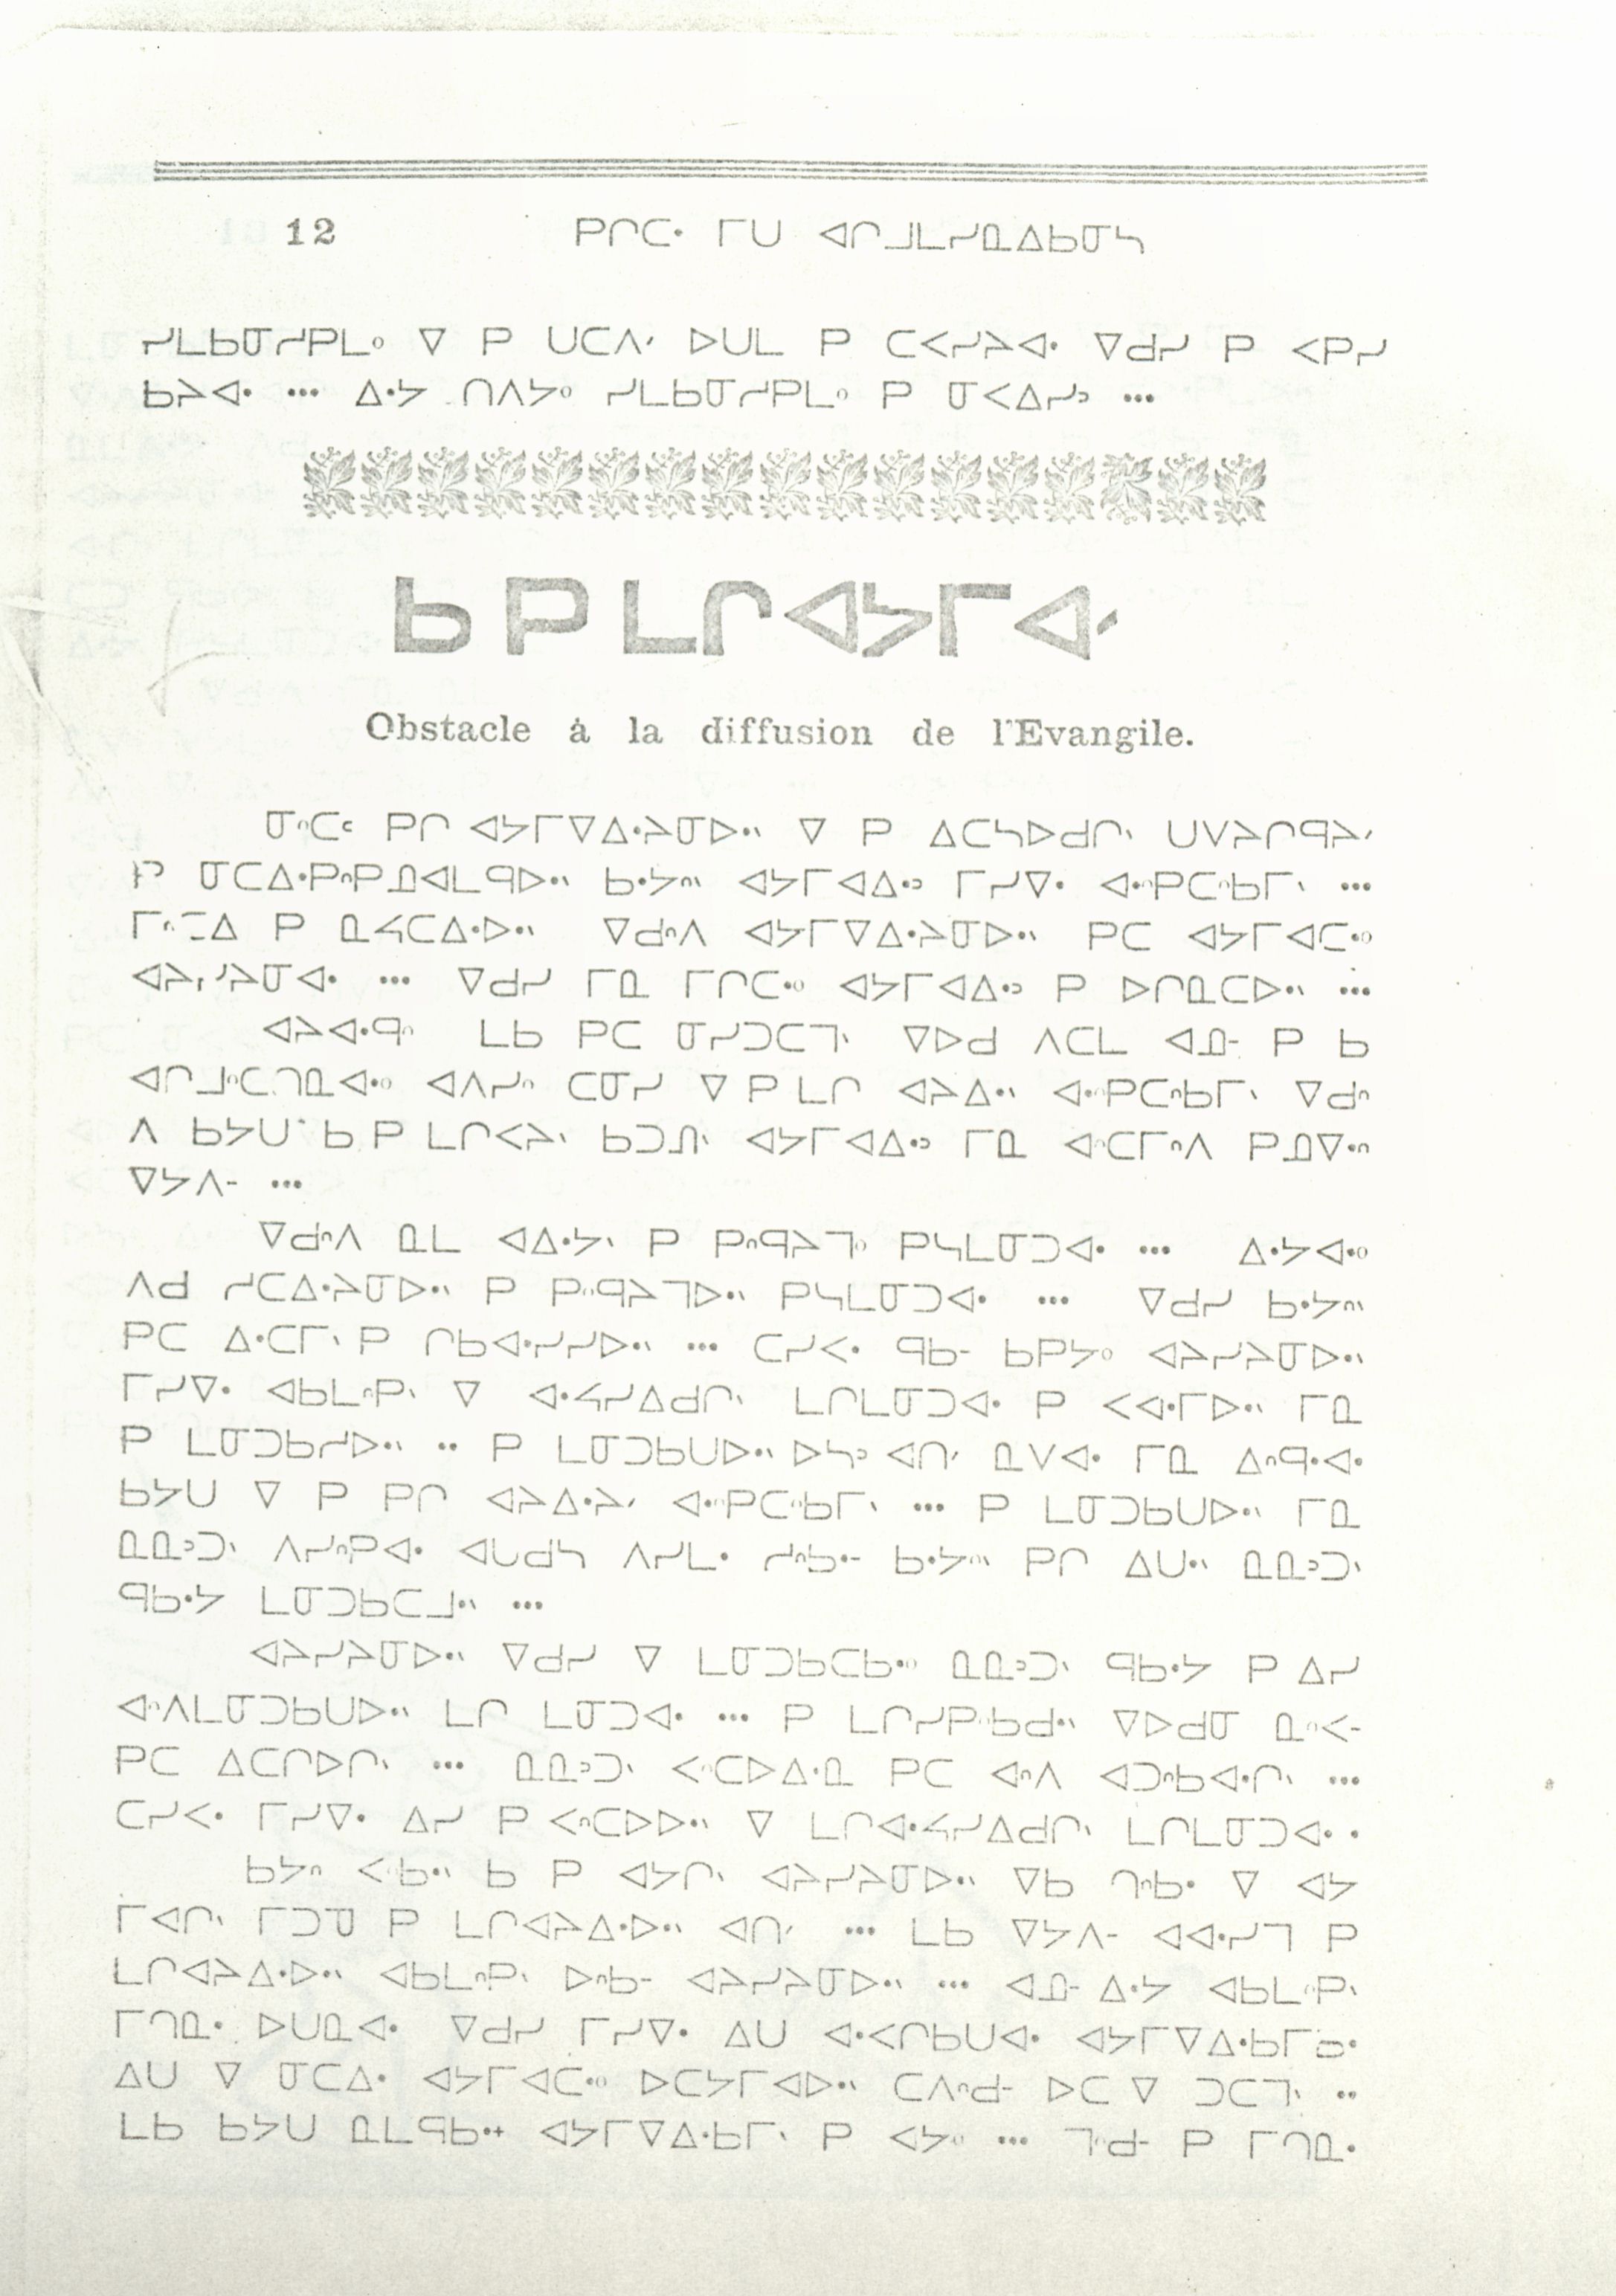 12 ᑭᒋᑕᐧ ᒥᑌ ᐊᒋᒧᒪᓯᓇᐃᑲᓂᓴ
ᓯᒪᑲᓂᓯᑭᒪᐤ ᐁ ᑭ ᑌᑕᐱᐟ ᐅᑌᒪ ᑭ ᑕᐸᓯᔨᐊᐧ ᐁᑯᓯ ᑭ ᐸᑭᓯ
ᑲᔨᐊᐧ ... ᐃᐧᔭ ᑎᐱᔭᐤ ᓯᒪᑲᓂᓯᑭᒪᐤ ᑭ ᓂᐸᐃᓯᐣ ...
ᑲ ᑭ ᒪᒋᐊᔭᒥᐊᐧ
Obstacle à la diffusion de l'Evangile.
ᓂᐢᑕᒼ ᑭᒋ ᐊᔭᒥᐁᐃᐧᔨᓂᐅᐧᐠ ᐁ ᑭ ᐃᑕᓴᐅᑯᒋᐠ ᑌᐯᔨᒋᑫᔨᐟ
ᑭ ᓂᑕᐃᐧᑭᐢᑭᓄᐊᒪᑫᐅᐧᐠ ᑲᐧᔭᐢᐠ ᐊᔭᒥᐊᐃᐧᐣ ᒥᓯᐁᐧ ᐊᐧᐢᑭᑕᐢᑲᒥᐠ ...
ᐁᑯᐢᐱ ᐊᔭᒥᐁᐃᐧᔨᓂᐅᐧᐠ ᑭᑕ ᐊᔭᒥᐊᑕᐧᐤ
ᐊᔨᓯᔨᓂᐊᐧ ... ᐁᑯᓯ ᒥᓇ ᒥᒋᑕᐧᐤ ᐊᔭᒥᐊᐃᐧᐣ ᑭ ᐅᒋᓇᑕᐅᐧᐠ ...
ᐊᔨᐊᐧᐠ ᒪᑲ ᑭᑕ ᓂᓯᑐᑕᒣᐠ ᐁᐅᑯ ᐱᑕᒪ ᐊᓄᐨ ᑭ ᑲ
ᐊᐱᓯᐢ ᑕᓂᓯ ᐁ ᑭ ᒪᒋ ᐊᔨᐃᐧᐠ ᐊᐧᐢᑭᑕᐢᑲᒥᐠ ᐁᑯᐢ
ᐱ ᑲᔭᑌ ᑲ ᑭ ᒪᒋᐸᔨᐠ ᑲᑐᓕᐠ ᐊᔭᒥᐊᐃᐧᐣ ᒥᓇ ᐊᐢᑕᒥᐢᐱ ᑭᓄᐁᐧᐢ
ᐁᔭᐱᐨ ...
ᐁᑯᐢᐱ ᓇᒪ ᐊᐃᐧᔭᐠ ᑭ ᑭᐢᑫᔨᒣᐤ ᑭᓴᒪᓂᑐᐊᐧ ... ᐃᐧᔭᐊᐧᐤ
ᐱᑯ ᓯᑕᐃᐧᔨᓂᐅᐧᐠ ᑭ ᑭᐢᑫᔨᒣᐅᐧᐠ ᑭᓴᒪᓂᑐᐊᐧ ... ᐁᑯᓯ ᑲᐧᔭᐢᐠ
ᑭᑕ ᐃᐧᑕᒥᐠ ᑭ ᒋᑲᐊᐧᓯᓯᐅᐧᐠ ... ᑕᓯᐸᐧ ᑫᑲᐨ ᑲᑭᔭᐤ ᐊᔨᓯᔨᓂᐅᐧᐠ
ᒥᓯᐁᐧ ᐊᑲᒪᐢᑭᐠ ᐁ ᐊᐧᔦᓯᐃᑯᒋᐠ ᒪᒋᒪᓂᑐᐊᐧ ᑭ ᐸᐊᐧᒥᐅᐧᐠ ᒥᓇ
ᑭ ᒪᓂᑐᑲᓯᐅᐧᐠ .. ᑭ ᒪᓂᑐᑲᑌᐅᐧᐠ ᐅᓴᐣ ᐊᑎᐟ ᓇᐯᐊᐧ ᒥᓇ ᐃᐢᑫᐧᐊᐧ
ᑲᔭᑌ ᐁ ᑭ ᑭᒋ ᐊᔨᐃᐧᔨᐟ ᐊᐧᐢᑭᑕᐢᑲᒥᐠ ... ᑭ ᒪᓂᑐᑲᑌᐅᐧᐠ ᒥᓇ
ᓇᓇᐣᑐᐠ ᐱᓯᐢᑭᐊᐧ ᐊᑌᑯᓴ ᐱᓯᒪᐧ ᑲᐧᔭᐢᐠ ᑭᒋ ᐃᑌᐧᐠ ᓇᓇᐣᑐᐠ
ᑫᑲᐧᔭ ᒪᓂᑐᑲᑕᒧᐧᐠ ...
ᐊᔨᓯᔨᓂᐅᐧᐠ ᐁᑯᓯ ᐁ ᒪᓂᑐᑲᑕᑲᐧᐤ ᓇᓇᐣᑐᐠ ᑫᑲᐧᔭ ᑭ ᐃᓯ
ᐊᐢᐱᒪᓂᑐᑲᑌᐅᐧᐠ ᒪᒋ ᒪᓂᑐᐊᐧ ... ᑭ ᒪᒋᓯᑭᐢᑲᑯᐧᐠ ᐁᐅᑯᓂ ᓇᐢᐸᐨ
ᑭᑕ ᐃᑕᒋᐅᒋᐠ ... ᓇᓇᐣᑐᐠ ᐸᐢᑕᐅᐃᐧᓇ ᑭᑕ ᐊᐢᐱ ᐊᑐᐢᑲᐊᐧᒋᐠ ...
ᑕᓯᐸᐧ ᒥᓯᐁᐧ ᐃᓯ ᑭ ᐸᐢᑕᐅᐅᐧᐠ ᐁ ᒪᒋᐊᐧᔦᓯᐃᑯᒋᐠ ᒪᒋᒪᓂᑐᐊᐧ ·
ᑲᔭᐢ ᐸᐢᑲᐧᐠ ᑲ ᑭ ᐊᔭᒋᐠ ᐊᔨᓯᔨᓂᐅᐧᐠ ᐁᑲ ᒋᐢᑲᐧ ᐁ ᐊᔭ
ᒥᐊᒋᐠ ᒥᑐᑯ ᑭ ᒪᒋᐊᔨᐃᐧᐅᐧᐠ ᐊᑎᐟ ... ᒪᑲ ᐁᔭᐱᐨ ᐊᐊᐧᓯᒣ ᑭ
ᒪᒋᐊᔨᐃᐧᐅᐧᐠ ᐊᑲᒪᐢᑭᐠ ᐅᐢᑲᐨ ᐊᔨᓯᔨᓂᐅᐧᐠ ... ᐊᓄᐨ ᐃᐧᔭ ᐊᑲᒪᐢᑭᐠ
ᒥᑐᓇᐧ ᐅᑌᓇᐊᐧ ᐁᑯᓯ ᒥᓯᐁᐧ ᐃᑌ ᐊᐧᐸᒋᑲᑌᐊᐧ ᐊᔭᒥᐁᐃᐧᑲᒥᑲᐧ
ᐃᑌ ᐁ ᓂᑕᐃᐧ ᐊᔭᒥᐊᑕᐧᐤ ᐅᑕᔭᒥᐊᐅᐧᐠ ᑕᐱᐢᑯᐨ ᐅᑕ ᐁ ᑐᑕᒣᐠ ..
ᒪᑲ ᑲᔭᑌ ᓇᒪᑫᑲᐧᐩ ᐊᔭᒥᐁᐃᐧᑲᒥᐠ ᑭ ᐊᔭᐤ ... ᒣᐢᑯᐨ ᑭ ᒥᑐᓇᐧ